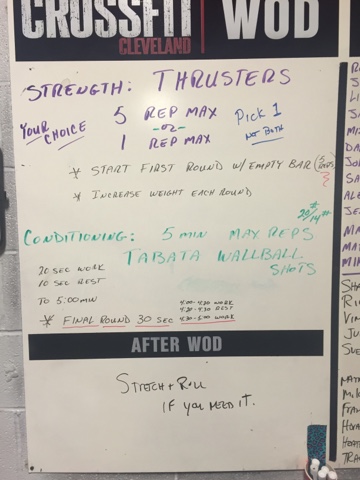 CROSSFIT WOD
CLEVELAND
STRENGTH: THRUSTERS
YOUR CHOICE
5 REP MAX
-OR-
1 REP MAX
Pick 1
NOT BOTH
* START FIRST ROUND W/ EMPTY BAR
* INCREASE WEIGHT EACH ROUND
20#/14#
CONDITIONING: 5 MIN MAX REPS
TABATA WALLBALL
SHOTS
20 SEC WORK
10 SEC REST
TO 5:00 MIN
* FINAL ROUND 30 SEC
4:00-4:20 WORK
4:20-4:30 REST
4:30-5:00 WORK
AFTER WOD
STRETCH + ROLL
IF YOU NEED IT.